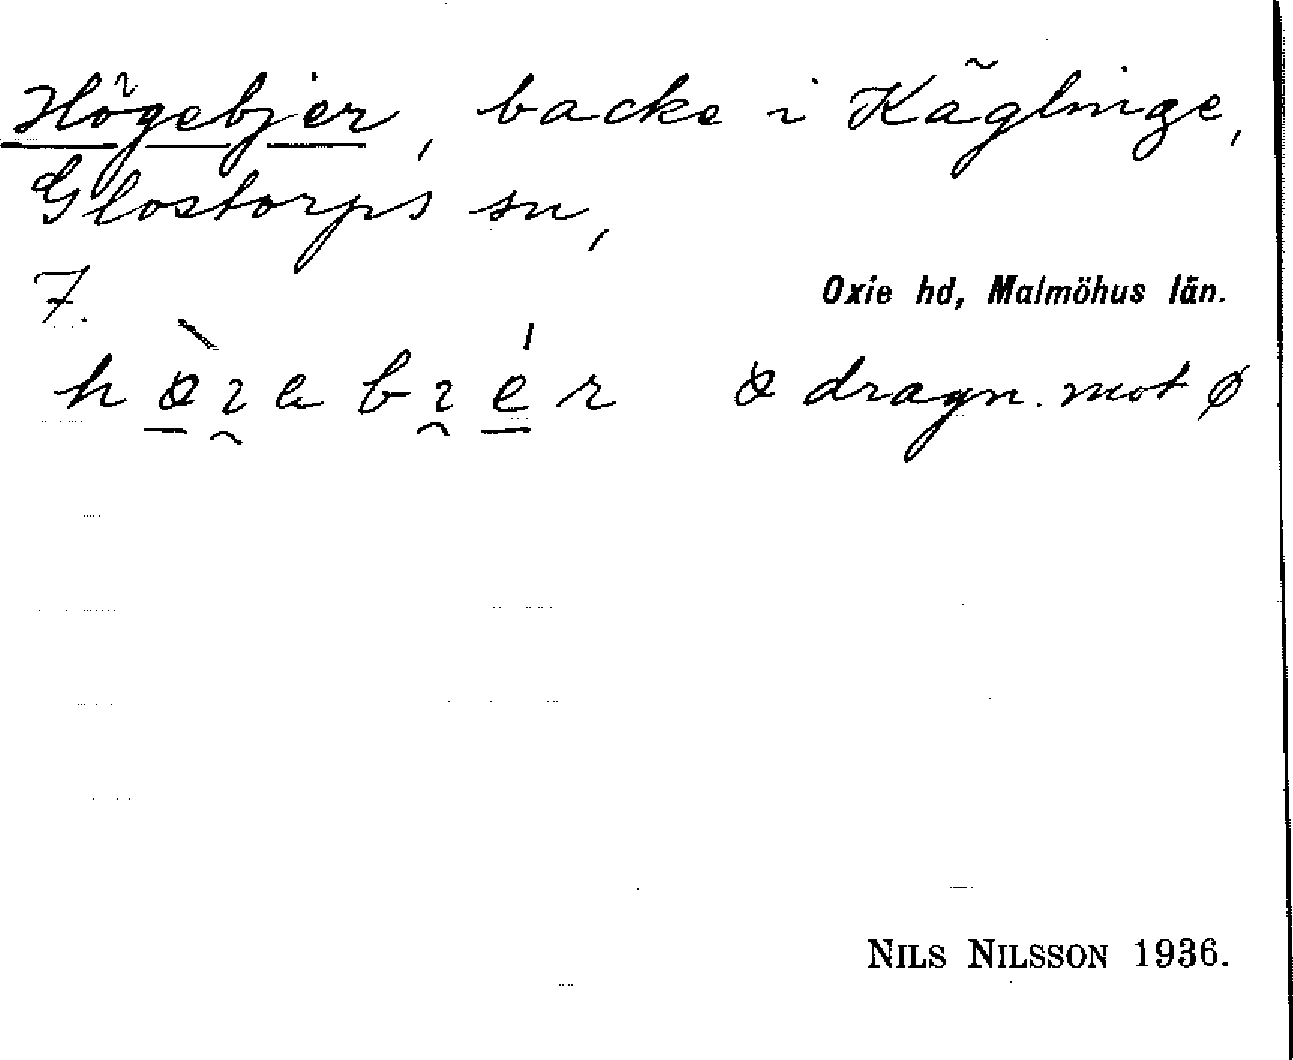 Högebjer, backe i Käglinge,
Glostorps sn,
7.
Oxie hd, Malmöhus län.
ö dragn. mot ø
NILS NILSSON 1936.